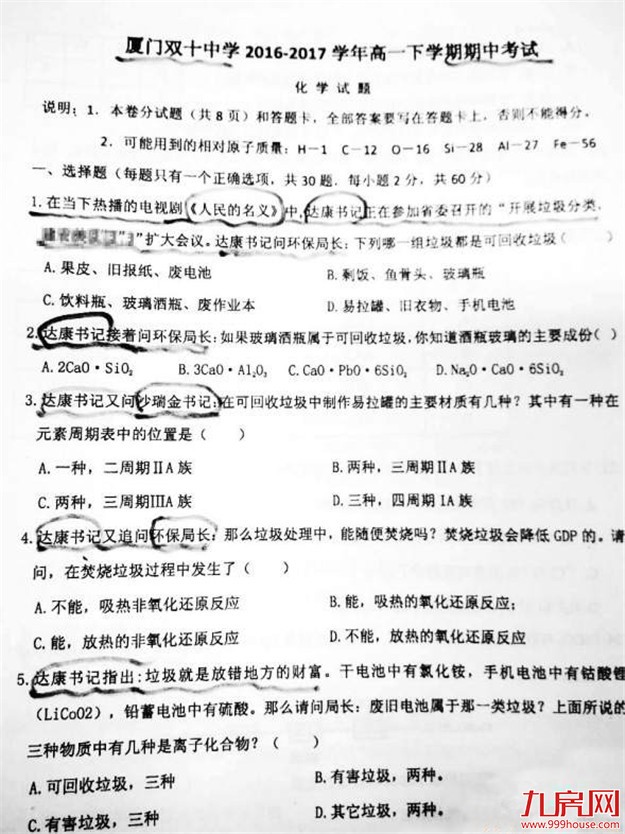 厦门双十中学 2016-2017 学年高一下学期期中考试
化学试题
说明：1．本卷分试题（共8页）和答题卡，全部答案要写在答题卡上，否则不能得分。
2．可能用到的相对原子质量：H-1 C-12 O-16 Si-28 Al-27 Fe-56
一、选择题（每题只有一个正确选项，共30题．每小题2分，共60分）
1.在当下热播的电视剧《人民的名义》中,达康书记正在参加省委召开的“开展垃圾分类,
”扩大会议。达康书记问环保局长：下列哪一组垃圾都是可回收垃圾（ ）
A.果皮、旧报纸、废电池 B.剩饭、鱼骨头、玻璃瓶
C.饮料瓶、玻璃酒瓶、废作业本 D.易拉罐、旧衣物、手机电池
2.达康书记接着问环保局长：如果玻璃酒瓶属于可回收垃圾,你知道酒瓶玻璃的主要成份( )
A.2CaO·SiO₂ B.3CaO·Al₂O₃ C.CaO·PbO·6SiO₂ D.Na₂O·CaO·6SiO₂
3.达康书记又问沙瑞金书记：在可回收垃圾中制作易拉罐的主要材质有几种？其中有一种在
元素周期表中的位置是（ ）
A.一种，二周期ⅡA族 B.两种，三周期ⅡA族
C.两种，三周期ⅢA族 D.三种，四周期ⅠA族
4.达康书记又追问环保局长：那么垃圾处理中，能随便焚烧吗？焚烧垃圾会降低GDP的。请
问，在焚烧垃圾过程中发生了（ ）
A.不能，吸热非氧化还原反应 B.能，吸热的氧化还原反应；
C.能，放热的非氧化还原反应 D.不能，放热的氧化还原反应
5.达康书记指出：垃圾就是放错地方的财富。干电池中有氯化铵，手机电池中有钴酸锂
（LiCoO2），铅蓄电池中有硫酸。那么请问局长：废旧电池属于那一类垃圾？上面所说的
三种物质中有几种是离子化合物？（ ）
A.可回收垃圾，三种 B.有害垃圾，两种。
C.有害垃圾，三种 D.其它垃圾，两种。
九房网
www.999house.com